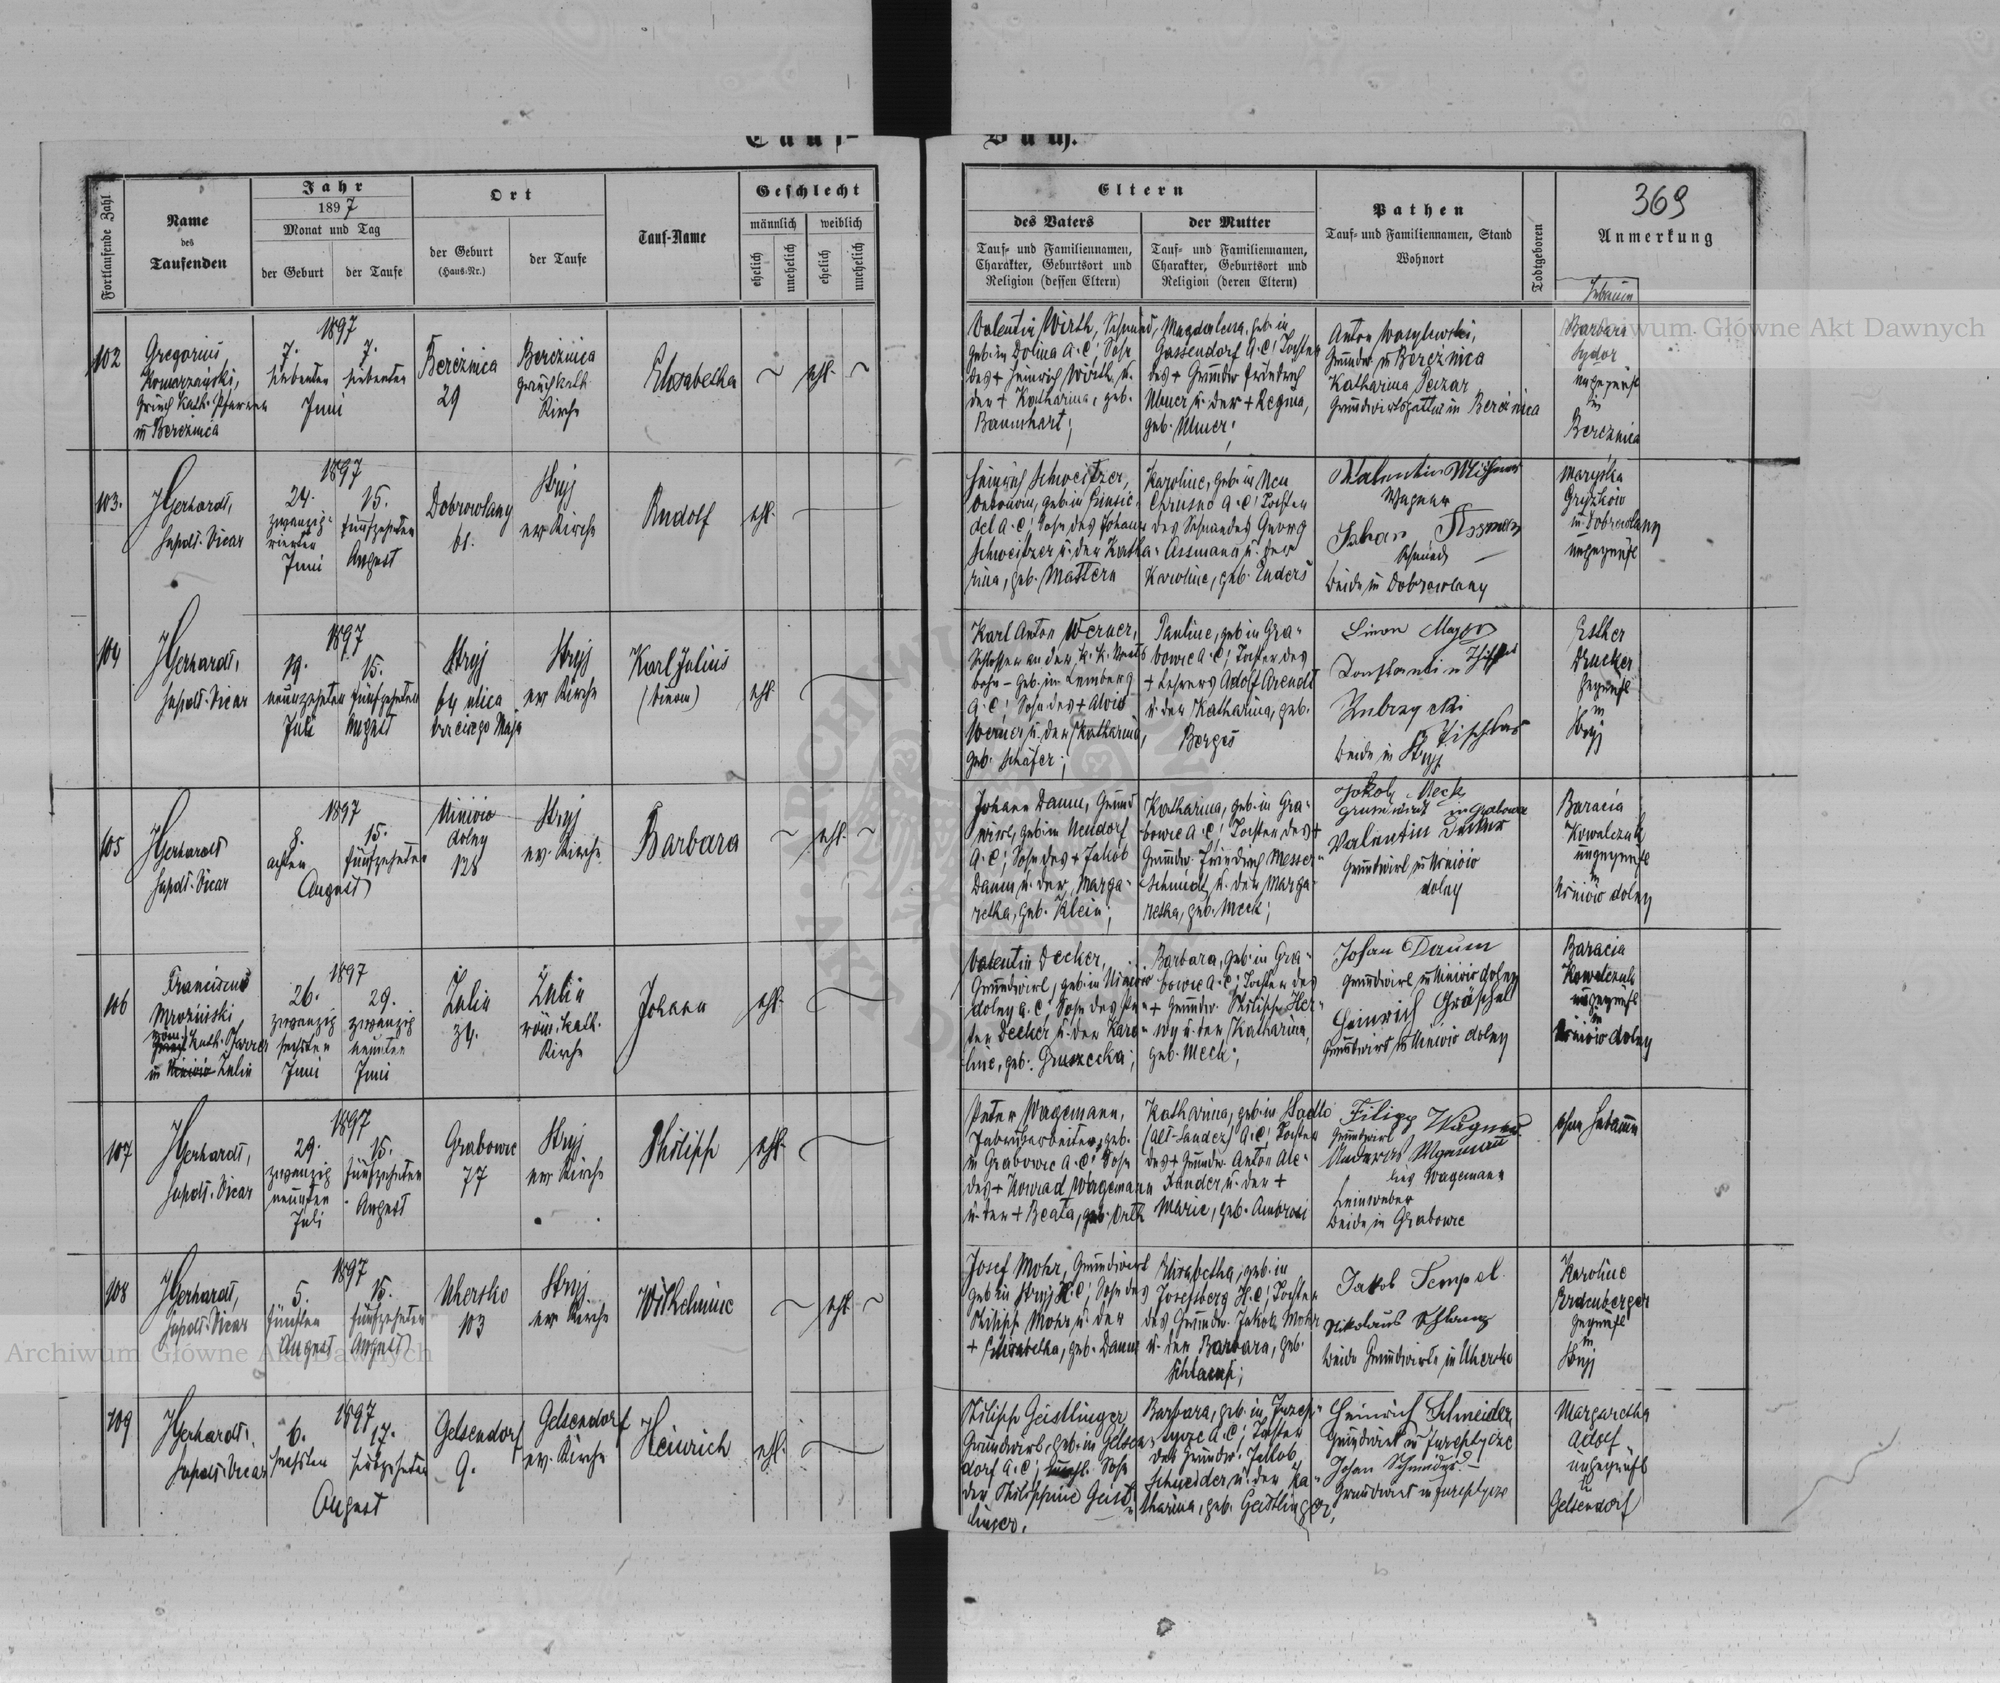 Tauf-
Buch.
Fortlaufende Zahl
Name
des
Taufenden
Jahr
1897
Monat und Tag
der Geburt
der Taufe
Ort
der Geburt
(Haus-Nr.)
der Taufe
Tauf-Name
Geschlecht
männlich
weiblich
ehelich
unehelich
ehelich
unehelich
Eltern
des Vaters
Tauf- und Familiennamen,
Charakter, Geburtsort und
Religion (dessen Eltern)
der Mutter
Tauf- und Familiennamen,
Charakter, Geburtsort und
Religion (deren Eltern)
Pathen
Tauf- und Familiennamen, Stand
Wohnort
Todtgeboren
369
Anmerkung
Hebamme
102
Gregorius
Komarzański,
Griech. Kath. Pfarrer
in Bereżnica
1897
7.
siebenten
7.
siebenten
Juni
Bereżnica
29
Bereżnica
griech. kath.
Kirche
Elisabetha
ehl.
Valentin Wirth, Schmied,
geb. in Dolina A.C; Sohn
des + Heinrich Wirth u.
der + Katharina, geb.
Baumhart;
Magdalena, geb. in
Gassendorf A.C; Tochter
des + Grundw. Friedrich
Ulmer u. der + Regina,
geb. Ulmer;
Anton Wasylewski,
Grundw. in Bereżnica
Katharina
Grundwirthsgattin in Bereżnica
Barbara
Sydor
ungeprüft
in
Bereżnica
103.
J Gerhardt,
Supdt. Vicar
1897
24.
zwanzig-
vierten
Juni
15.
fünfzehnten
August
Dobrowlany
61.
Stryj
ev Kirche
Rudolf
ehl.
Heinrich Schweitzer,
Oekonom, geb. in
del A.C; Sohn des Johann
Schweitzer u. der Katha-
rina, geb. Mattern
Karoline, geb. in Neu
Chrusno A.C; Tochter
des Schmiedes Georg
Assmann u. der
Karoline, geb. Enders
Valentin
Wagner
Johan Assman
Schmied
beide in Dobrowlany
Maryśka
Gryszków
in Dobrowlany
ungeprüft
104
J Gerhardt,
Supdt. Vicar
1897
19.
neunzehnten
Juli
15.
fünfzehnten
August
Stryj
64 ulica
trzeciego Maja
Stryj
ev Kirche
Karl Julius
(Simon)
ehl.
Karl Anton Werner,
Schlosser an der K. K. Staats
bahn - geb. in Lemberg
A.C; Sohn des + Alois
Werner u. der Katharina,
geb. Schäfer;
Pauline, geb. in Gra-
bowce A.C; Tochter des
+ Lehrers Adolf Arendt
u. der Katharina, geb.
Berges
Simon Mayer
Konstantin
Kubrzycki
beide in Stryj
Esther
Drucker
geprüft
in
Stryj
105
J Gerhardt
Supdt. Vicar
1897
8.
achten
15.
fünfzehnten
August
Uniwio
dolny
128
Stryj
ev. Kirche
Barbara
ehl.
Johann Daum, Grund
wirt, geb. in Neudorf
A.C; Sohn des + Jakob
Daum u. der Marga-
retha, geb. Klein;
Katharina, geb. in Gra-
bowce A.C; Tochter des +
Grundw. Friedrich Messer-
schmidt u. der Marga-
retha, geb. Meck;
Jakob Meck
Grundwirt in Grabowce
Valentin Decker
Grundwirt in Uniwio
dolny
Baracia
Kowalczuk
ungeprüft
in
Uniwio dolny
106
Franciscus
Mroziński
röm. Kath. Pfarrer
in Uniwio Zulin
1897
26.
zwanzig
sechsten
Juni
29.
zwanzig
neunten
Juni
Zulin
34.
Zulin
röm. kath.
Kirche
Johann
ehl.
Valentin Decker,
Grundwirt, geb. in Uniwio
dolny A.C; Sohn des Pe-
ter Decker u. der Karo-
line, geb. Gruszecka;
Barbara, geb. in Gra-
bowce A.C; Tochter des
+ Grundw. Philipp Her-
wy u. der Katharina,
geb. Meck;
Johan Daum
Grundwirt in Uniwio dolny
Heinrich Gräschel
Grundwirt in Uniwio dolny
Baracia
Kowalczuk
ungeprüft
in
Uniwio dolny
107
J Gerhardt,
Supdt. Vicar
1897
29.
zwanzig
neunten
Juli
15.
fünfzehnten
August
Grabowce
77
Stryj
ev Kirche
Philipp
ehl.
Peter Wagemann,
Fabriksarbeiter, geb.
in Grabowce A.C; Sohn
des + Konrad Wagemann
u. der + Beata, geb. Orth
Katharina, geb. in Stadlo
(Alt-Sandez) A.C; Tochter
des + Grundw. Anton Ale-
xander u. der +
Marie, geb. Ambrosi
Filipp Wagner
Grundwirt
Wagemann
Leinweber
beide in Grabowce
ohne Hebamme
108
J Gerhardt,
Supdt. Vicar
1897
5.
fünften
August
15.
fünfzehnten
August
Uhersko
103
Stryj
ev Kirche
Wilhelmine
ehl.
Josef Mohr, Grundwirt
geb. in Stryj H.C; Sohn des
Philipp Mohr u. der
+ Elisabetha, geb. Daum
Elisabetha, geb. in
Josefsberg H.C; Tochter
des Grundw. Jakob Mohr
u. der Barbara, geb.
Schlamp;
Jakob Tempel
Nikolaus Schlamp
beide Grundwirte in Uhersko
Karoline
Bredenberger
geprüft
in
Stryj
109
J Gerhardt,
Supdt. Vicar
1897
6.
sechsten
17.
siebzehnten
August
Gelsendorf
9.
Gelsendorf
ev. Kirche
Heinrich
ehl.
Philipp Geistlinger,
Grundwirt, geb. in Gelsen-
dorf A.C; unehl. Sohn
der Philippine Geist-
linger.
Barbara, geb. in Jozep-
tycze A.C; Tochter
des Grundw. Jakob
Schneider u. der Ka-
tharina, geb. Geistlinger,
Heinrich Schneider,
Grundwirt in
Johan Schneider
Grundwirt in
Margaretha
Adolf
ungeprüft
in
Gelsendorf
Archiwum Główne Akt Dawnych
Archiwum Główne Akt Dawnych